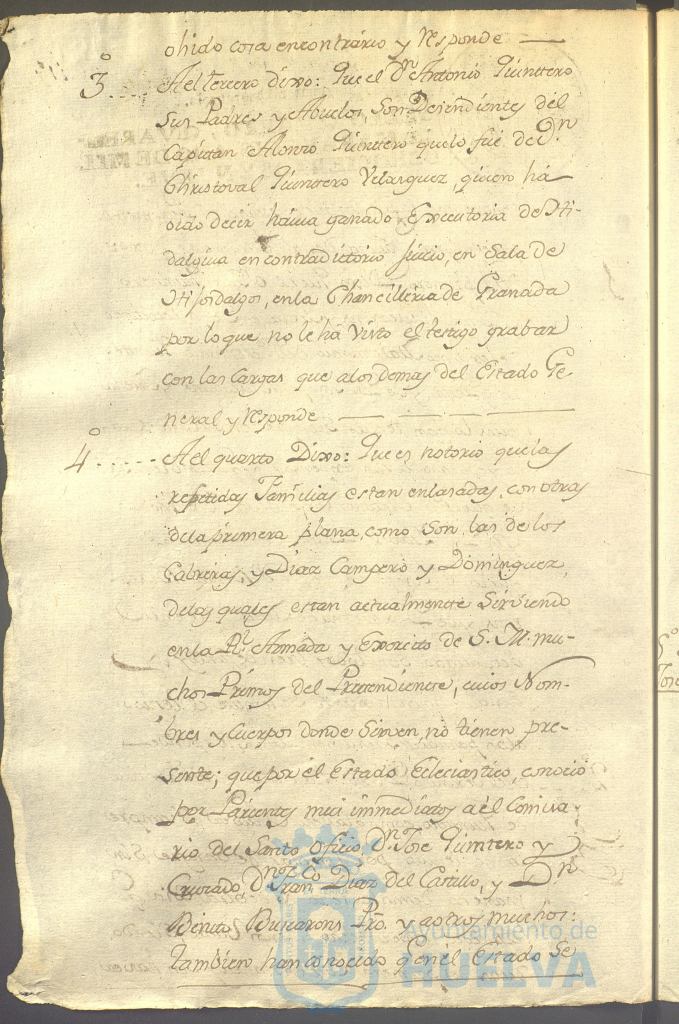 ohido cosa encontrario y responde
3.º Ael tercero dixo: Que el Dn. Antonio Quintero
sus Padres y Abuelos, son Desendientes del
Capitan Alonso Quintero quelo fue de Dn.
Christoval Quintero Velasquez, quien há
oido decir havia ganado Executoria de Hi-
dalguia en contradictorio Juicio, en Sala de
Hijosdalgos, enla Chancilleria de Granada
por lo que no le há visto el testigo grabar
con las Cargas que alos demas del Estado Ge-
neral y responde
4.º Ael quarto Dixo: Que es notorio quelas
repetidas Familias estan enlasadas, con otras
dela primera plana, como son las de los
Cabreras, y Diaz Campero y Dominguez,
delas quales estan actualmente Sirviendo
enla Rl. Armada y Exercito de S. M. mu-
chos Primos del Pretendiente, cuios Nom-
bres y Cuerpos donde Sirven, no tienen pre-
sente; que por el Estado Ecleciastico, conocio
por Parientes mui immediatos aél Comisa-
rio del Santo Oficio Dn. Jose Quintero y
Cruzado, Dn. Franzco. Diaz del Castillo, y Dn.
Benito Pro. y aotros muchos:
tambien han conocido qe. enel Estado Se
Ayuntamiento de
HUELVA